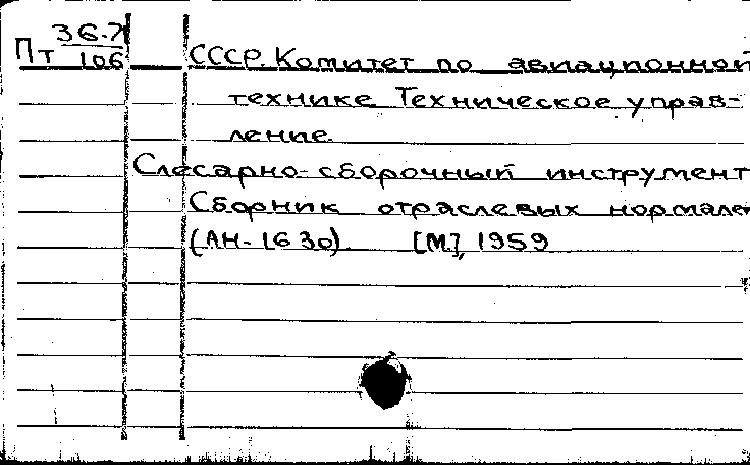 Пт 36.7/106 СССР. Комитет по авиационной
технике Техническое управ-
ление.
Слесарно-сборочный инструмент
Сборник отраслевых нормале
(АН-1630). [М], 1959